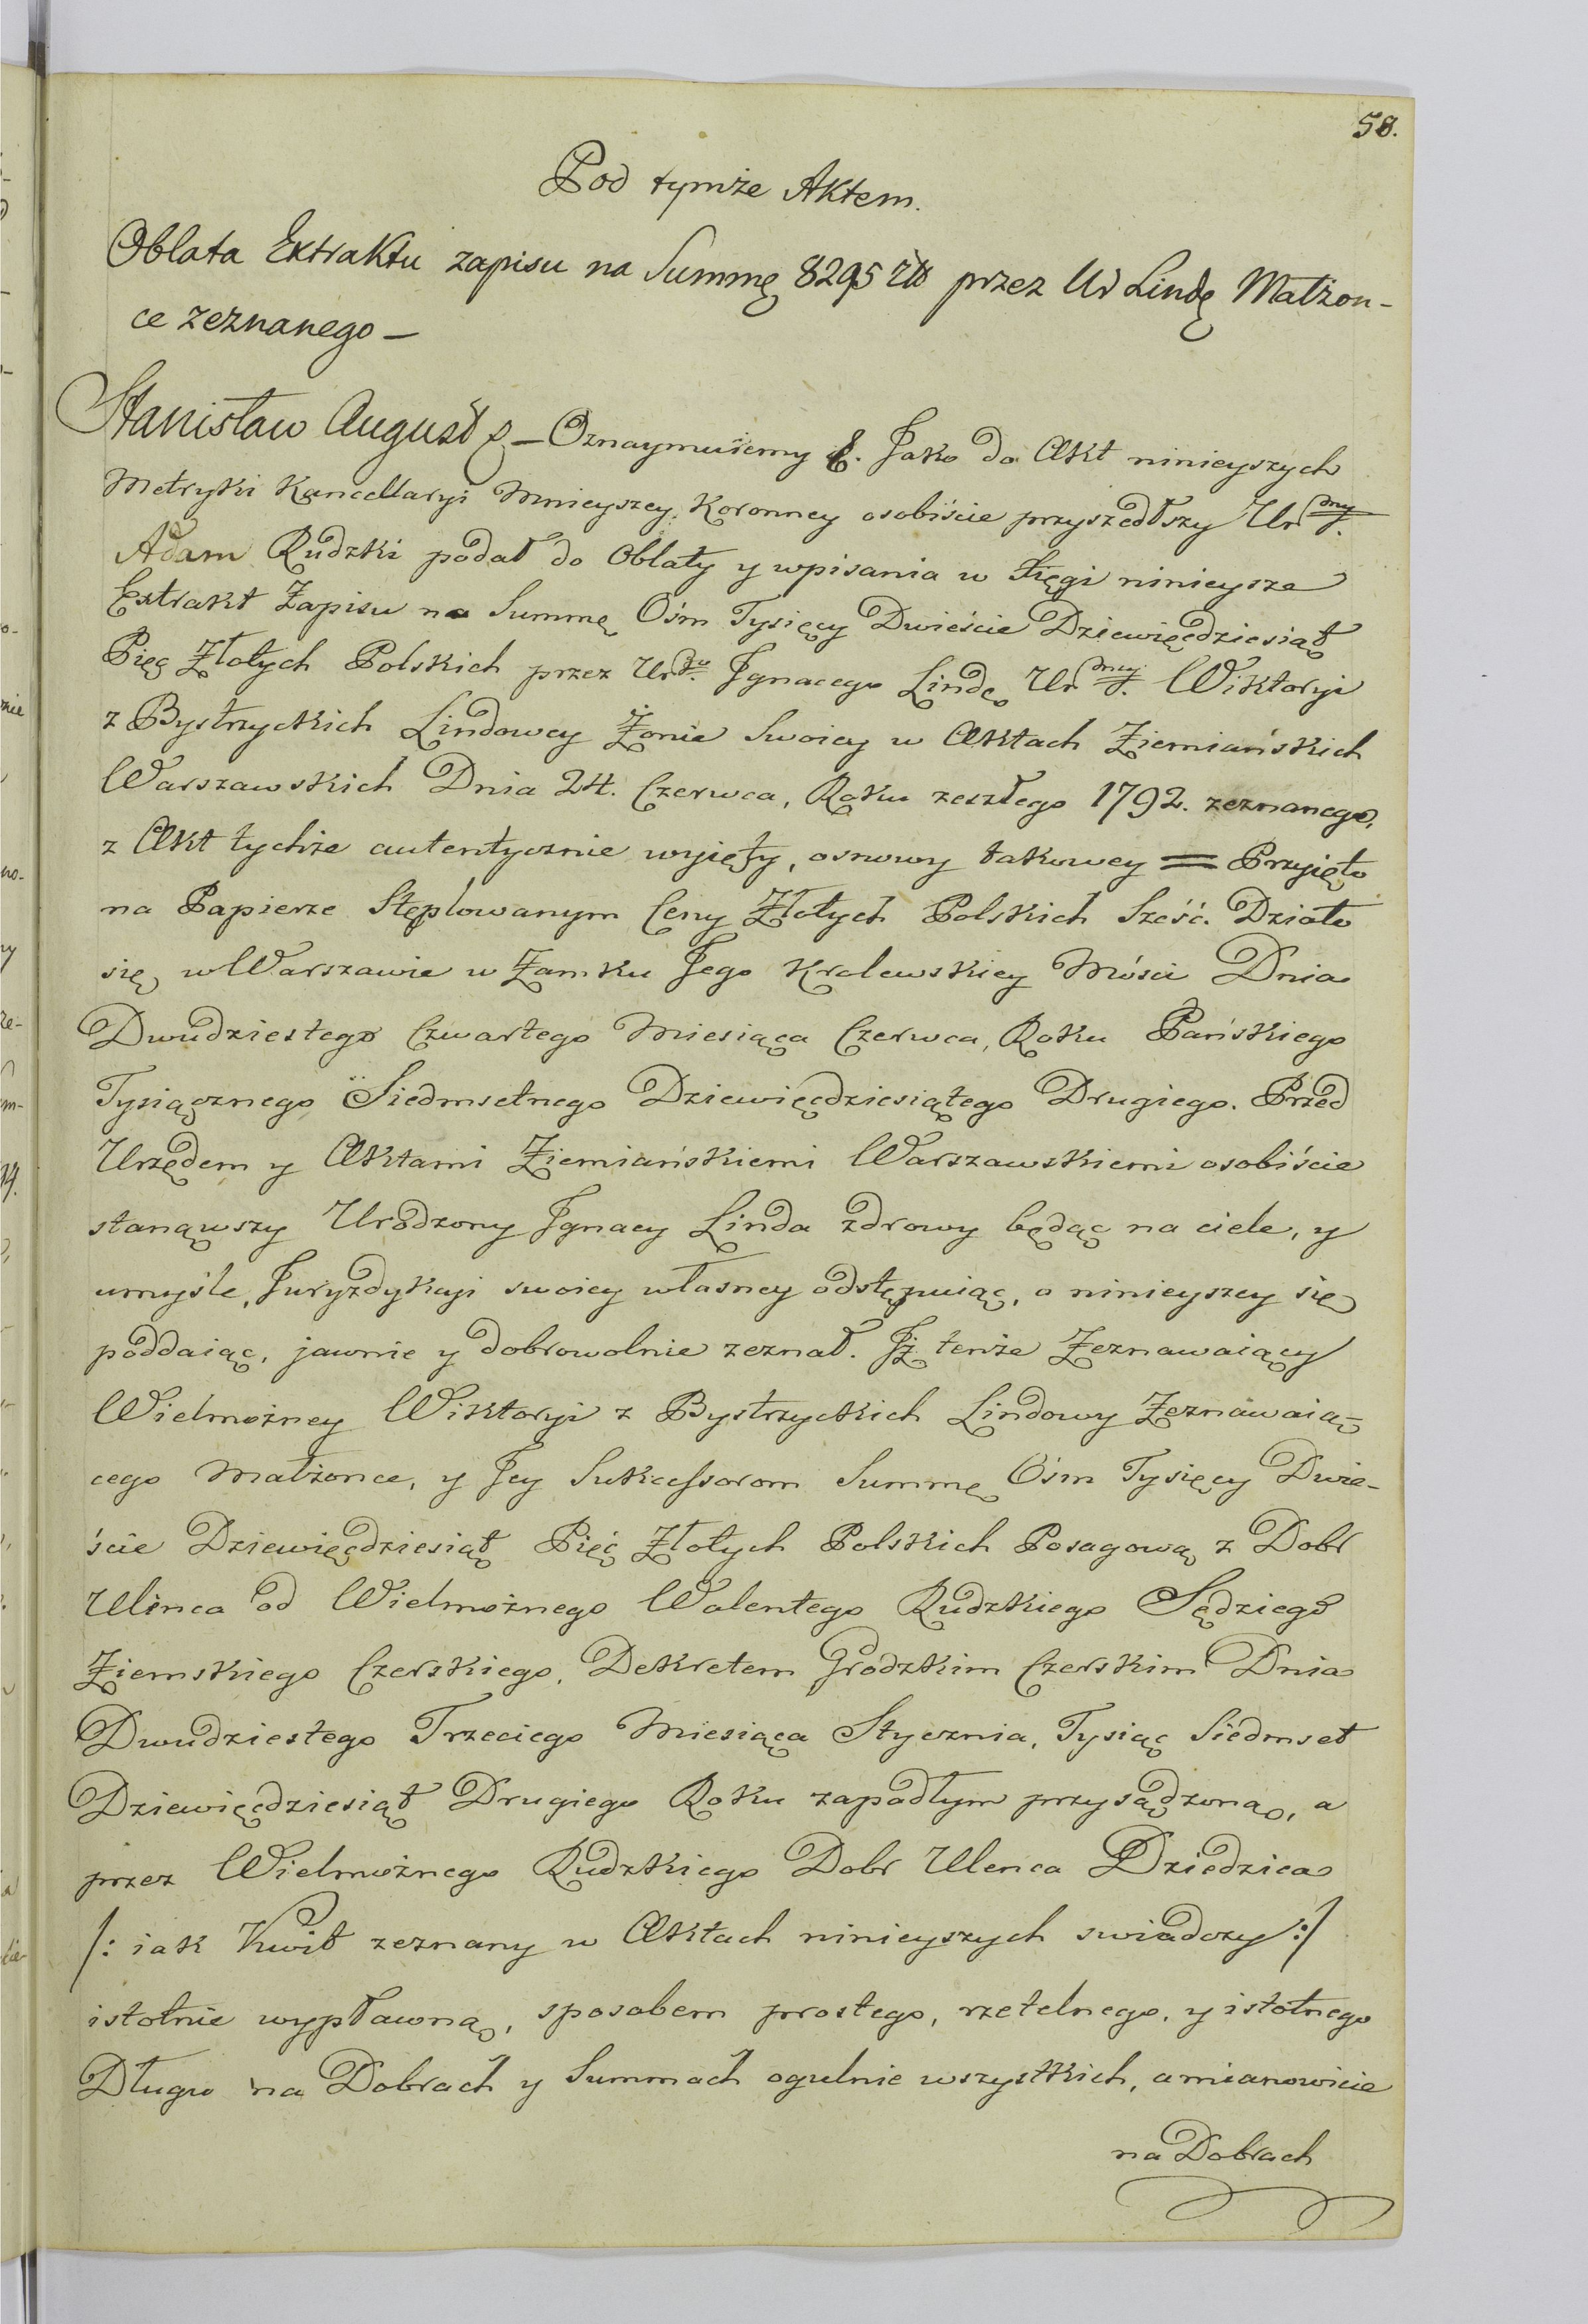 58.
Pod tymże Aktem.
Oblata Extraktu zapisu na Summę 8295 zł przez Ur Lindę Małżon-
ce zeznanego —
Stanisław August & — Oznaymuiemy &. Jako do Akt ninieyszych
Metryki Kancellaryi Mnieyszey Koronney osobiście przyszedłszy Urdny.
Adam Rudzki podał do Oblaty y wpisania w Xięgi ninieysze
Extrakt Zapisu na Summę Ośm Tysięcy Dwieście Dziewięćdziesiąt
Pięć Złotych Polskich przez Urdgo. Jgnacego Lindę Urdney. Wiktoryi
z Bystrzyckich Lindowey Żonie Swoiey w Aktach Ziemiańskich
Warszawskich Dnia 24. Czerwca, Roku zeszłego 1792. zeznanego,
z Akt tychże autentycznie wyięty, osnowy takowey = Przyięto
na Papierze Stęplowanym Ceny Złotych Polskich Sześć. Działo
się w Warszawie w Zamku Jego Krolewskiey Mości Dnia
Dwudziestego Czwartego Miesiąca Czerwca, Roku Pańskiego
Tysiącznego Siedmsetnego Dziewięćdziesiątego Drugiego. Przed
Urzędem y Aktami Ziemiańskiemi Warszawskiemi osobiście
stanąwszy Urodzony Jgnacy Linda zdrowy będąc na ciele, y
umyśle, Juryzdykcyi swoiey własney odstępuiąc, a ninieyszey się
poddaiąc, jawnie y dobrowolnie zeznał. Jż tenże Zeznawaiący
Wielmożney Wiktoryi z Bystrzyckich Lindowy Zeznawaią-
cego Małżonce, y Jey Sukcessorom Summę Ośm Tysięcy Dwie-
ście Dziewięćdziesiąt Pięć Złotych Polskich Posagową z Dobr
Ulinca od Wielmożnego Walentego Rudzkiego Sędziego
Ziemskiego Czerskiego, Dekretem Grodzkim Czerskim Dnia
Dwudziestego Trzeciego Miesiąca Stycznia, Tysiąc Siedmset
Dziewięćdziesiąt Drugiego Roku zapadłym przysądzoną, a
przez Wielmożnego Rudzkiego Dobr Ulenca Dziedzica
/: iak Kwit zeznany w Aktach ninieyszych swiadczy :/
istotnie wypławną, sposobem prostego, rzetelnego, y istotnego
Długu na Dobrach y Summach ogulnie wszystkich, a mianowicie
na Dobrach